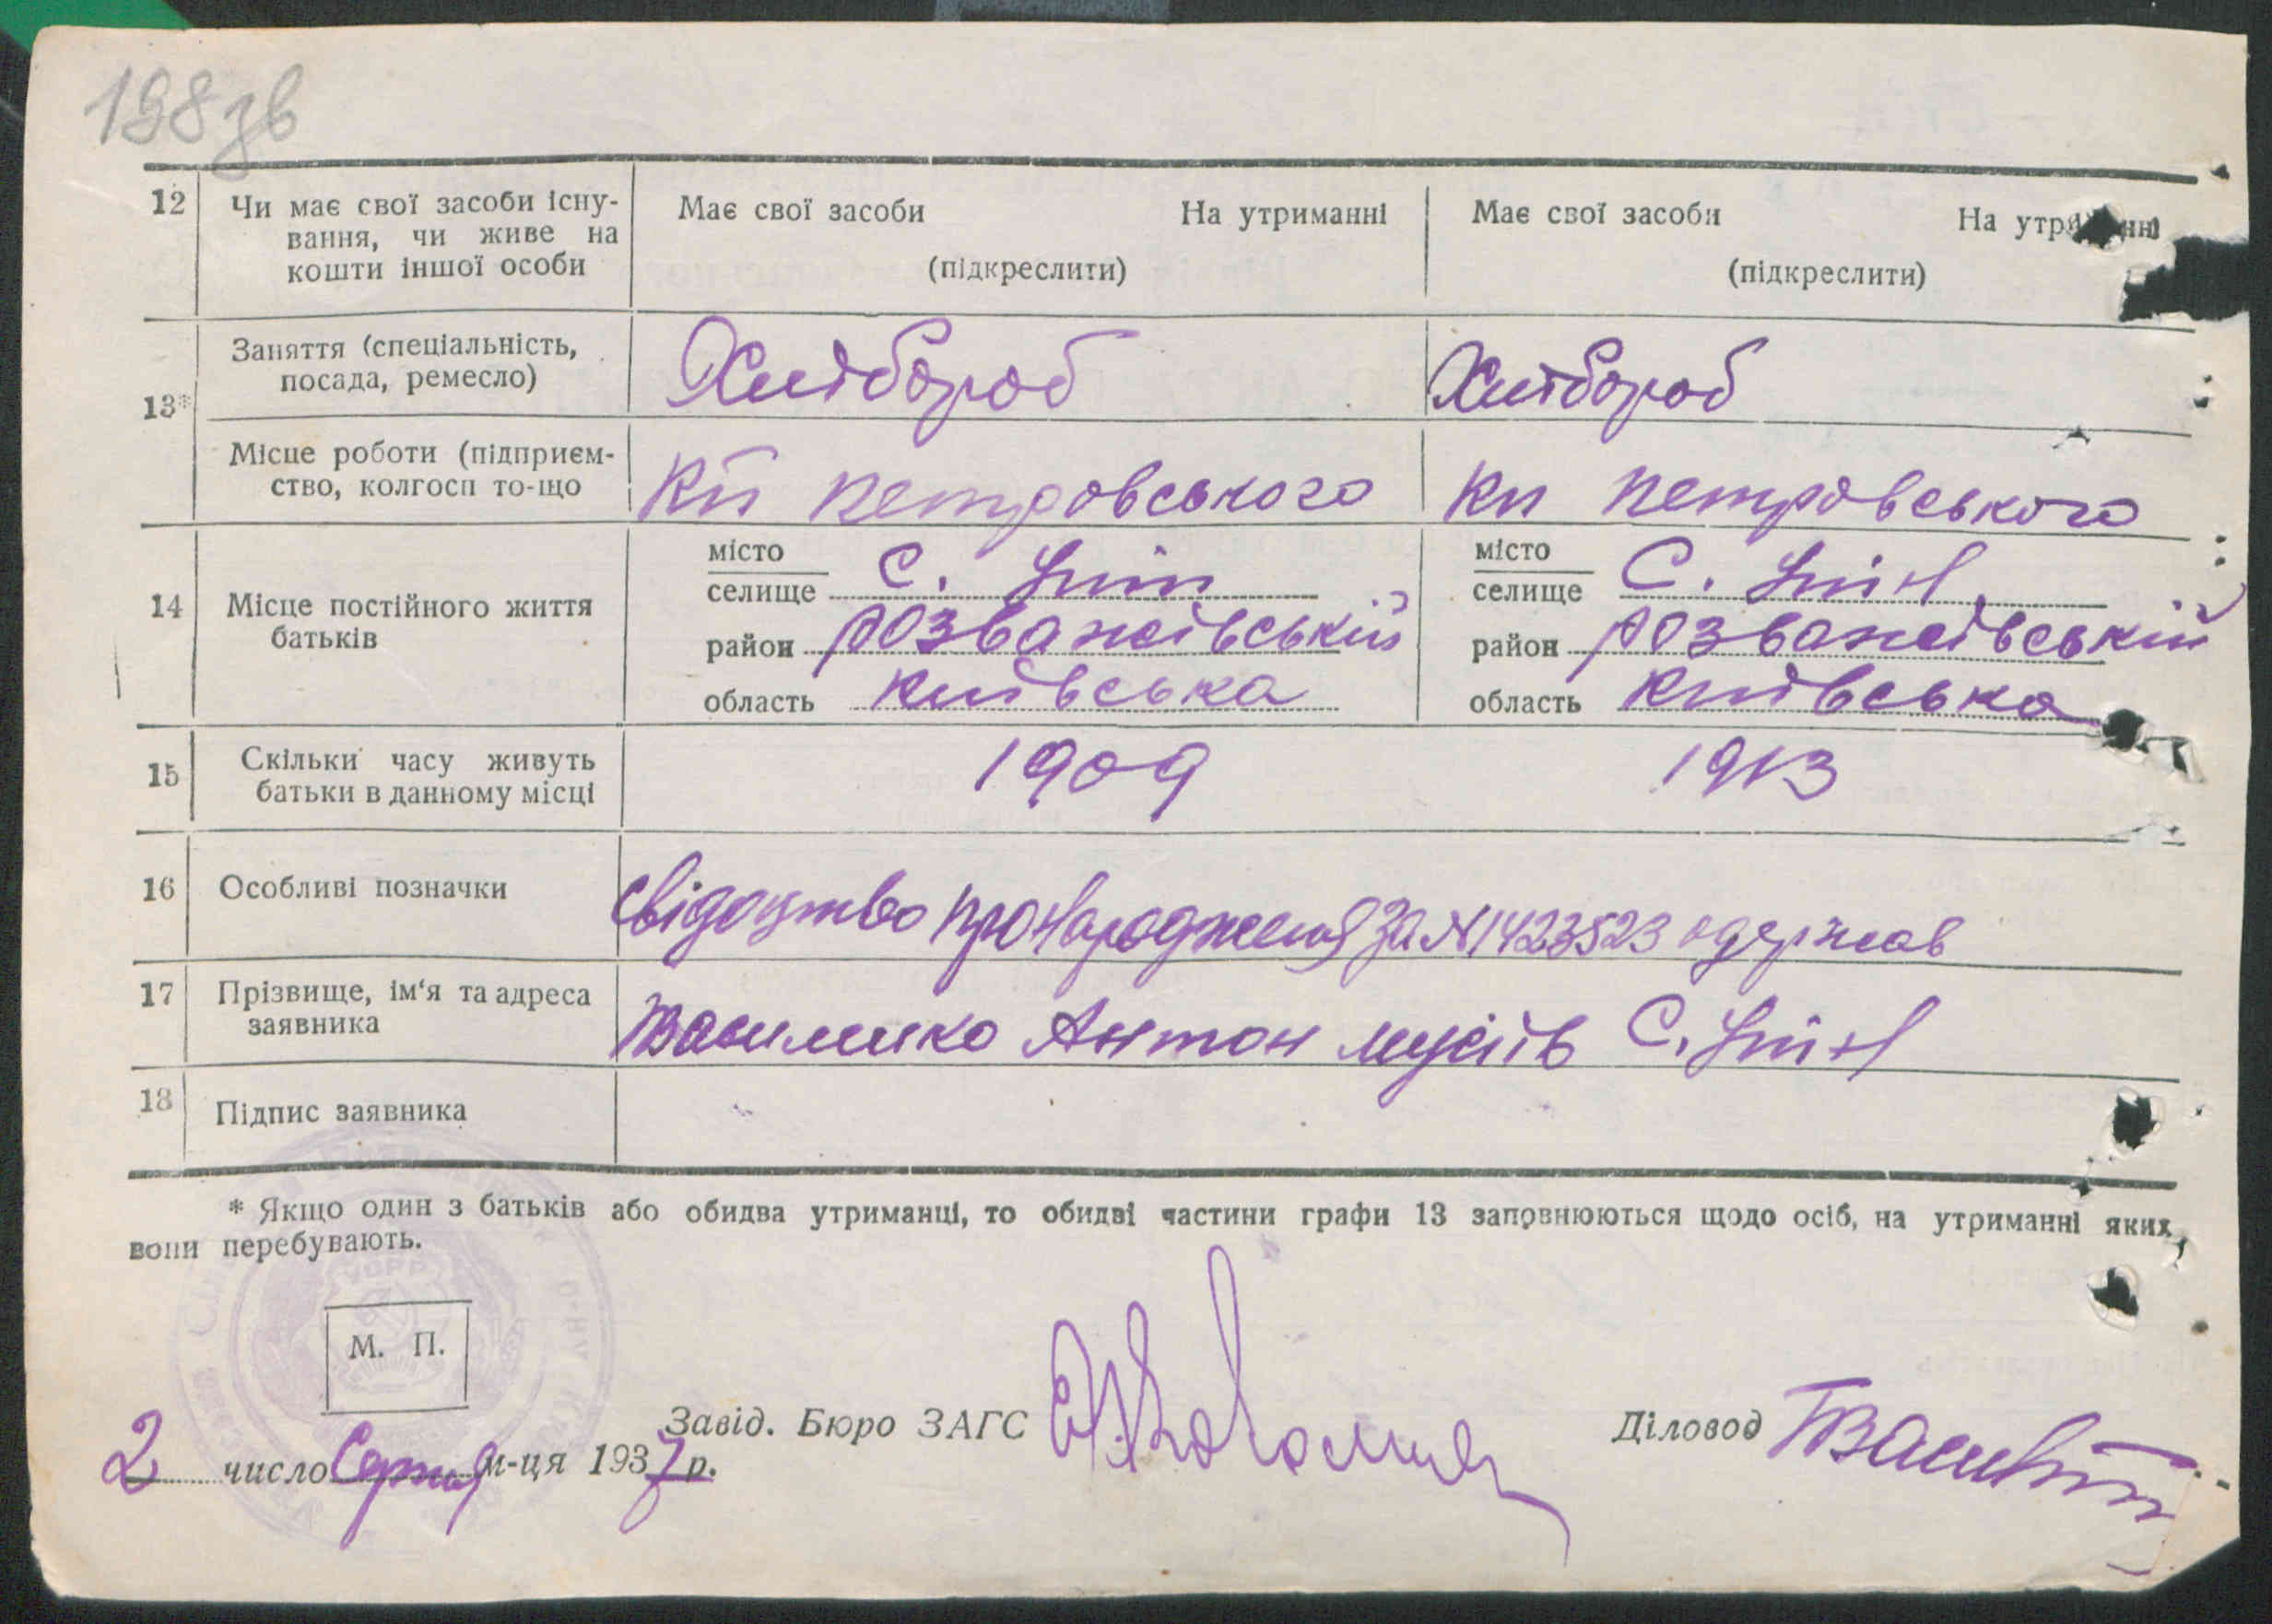 198 зв
12 Чи має свої засоби існу- Має свої засоби На утриманні Має свої засоби На утриманні
вання, чи живе на
кошти іншої особи (підкреслити) (підкреслити)
Заняття (спеціальність, Хлібороб Хлібороб
посада, ремесло)
13*
Місце роботи (підприєм- Кп петровського Кп петровського
ство, колгосп то-що
місто місто
селище С. селище С.
14 Місце постійного життя район розважівській район розважівській
батьків
область київська область київська
15 Скільки часу живуть 1909 1913
батьки в данному місці
16 Особливі позначки свідоцтво про народження за № 1423523 одержав
17 Прізвище, ім'я та адреса Василенко Антон мусіів С.
заявника
18 Підпис заявника
* Якщо один з батьків або обидва утриманці, то обидві частини графи 13 заповнюються щодо осіб, на утриманні яких
вони перебувають.
УСРР
М. П.
Завід. Бюро ЗАГС Діловод
2 число Серпня м-ця 1937 р.